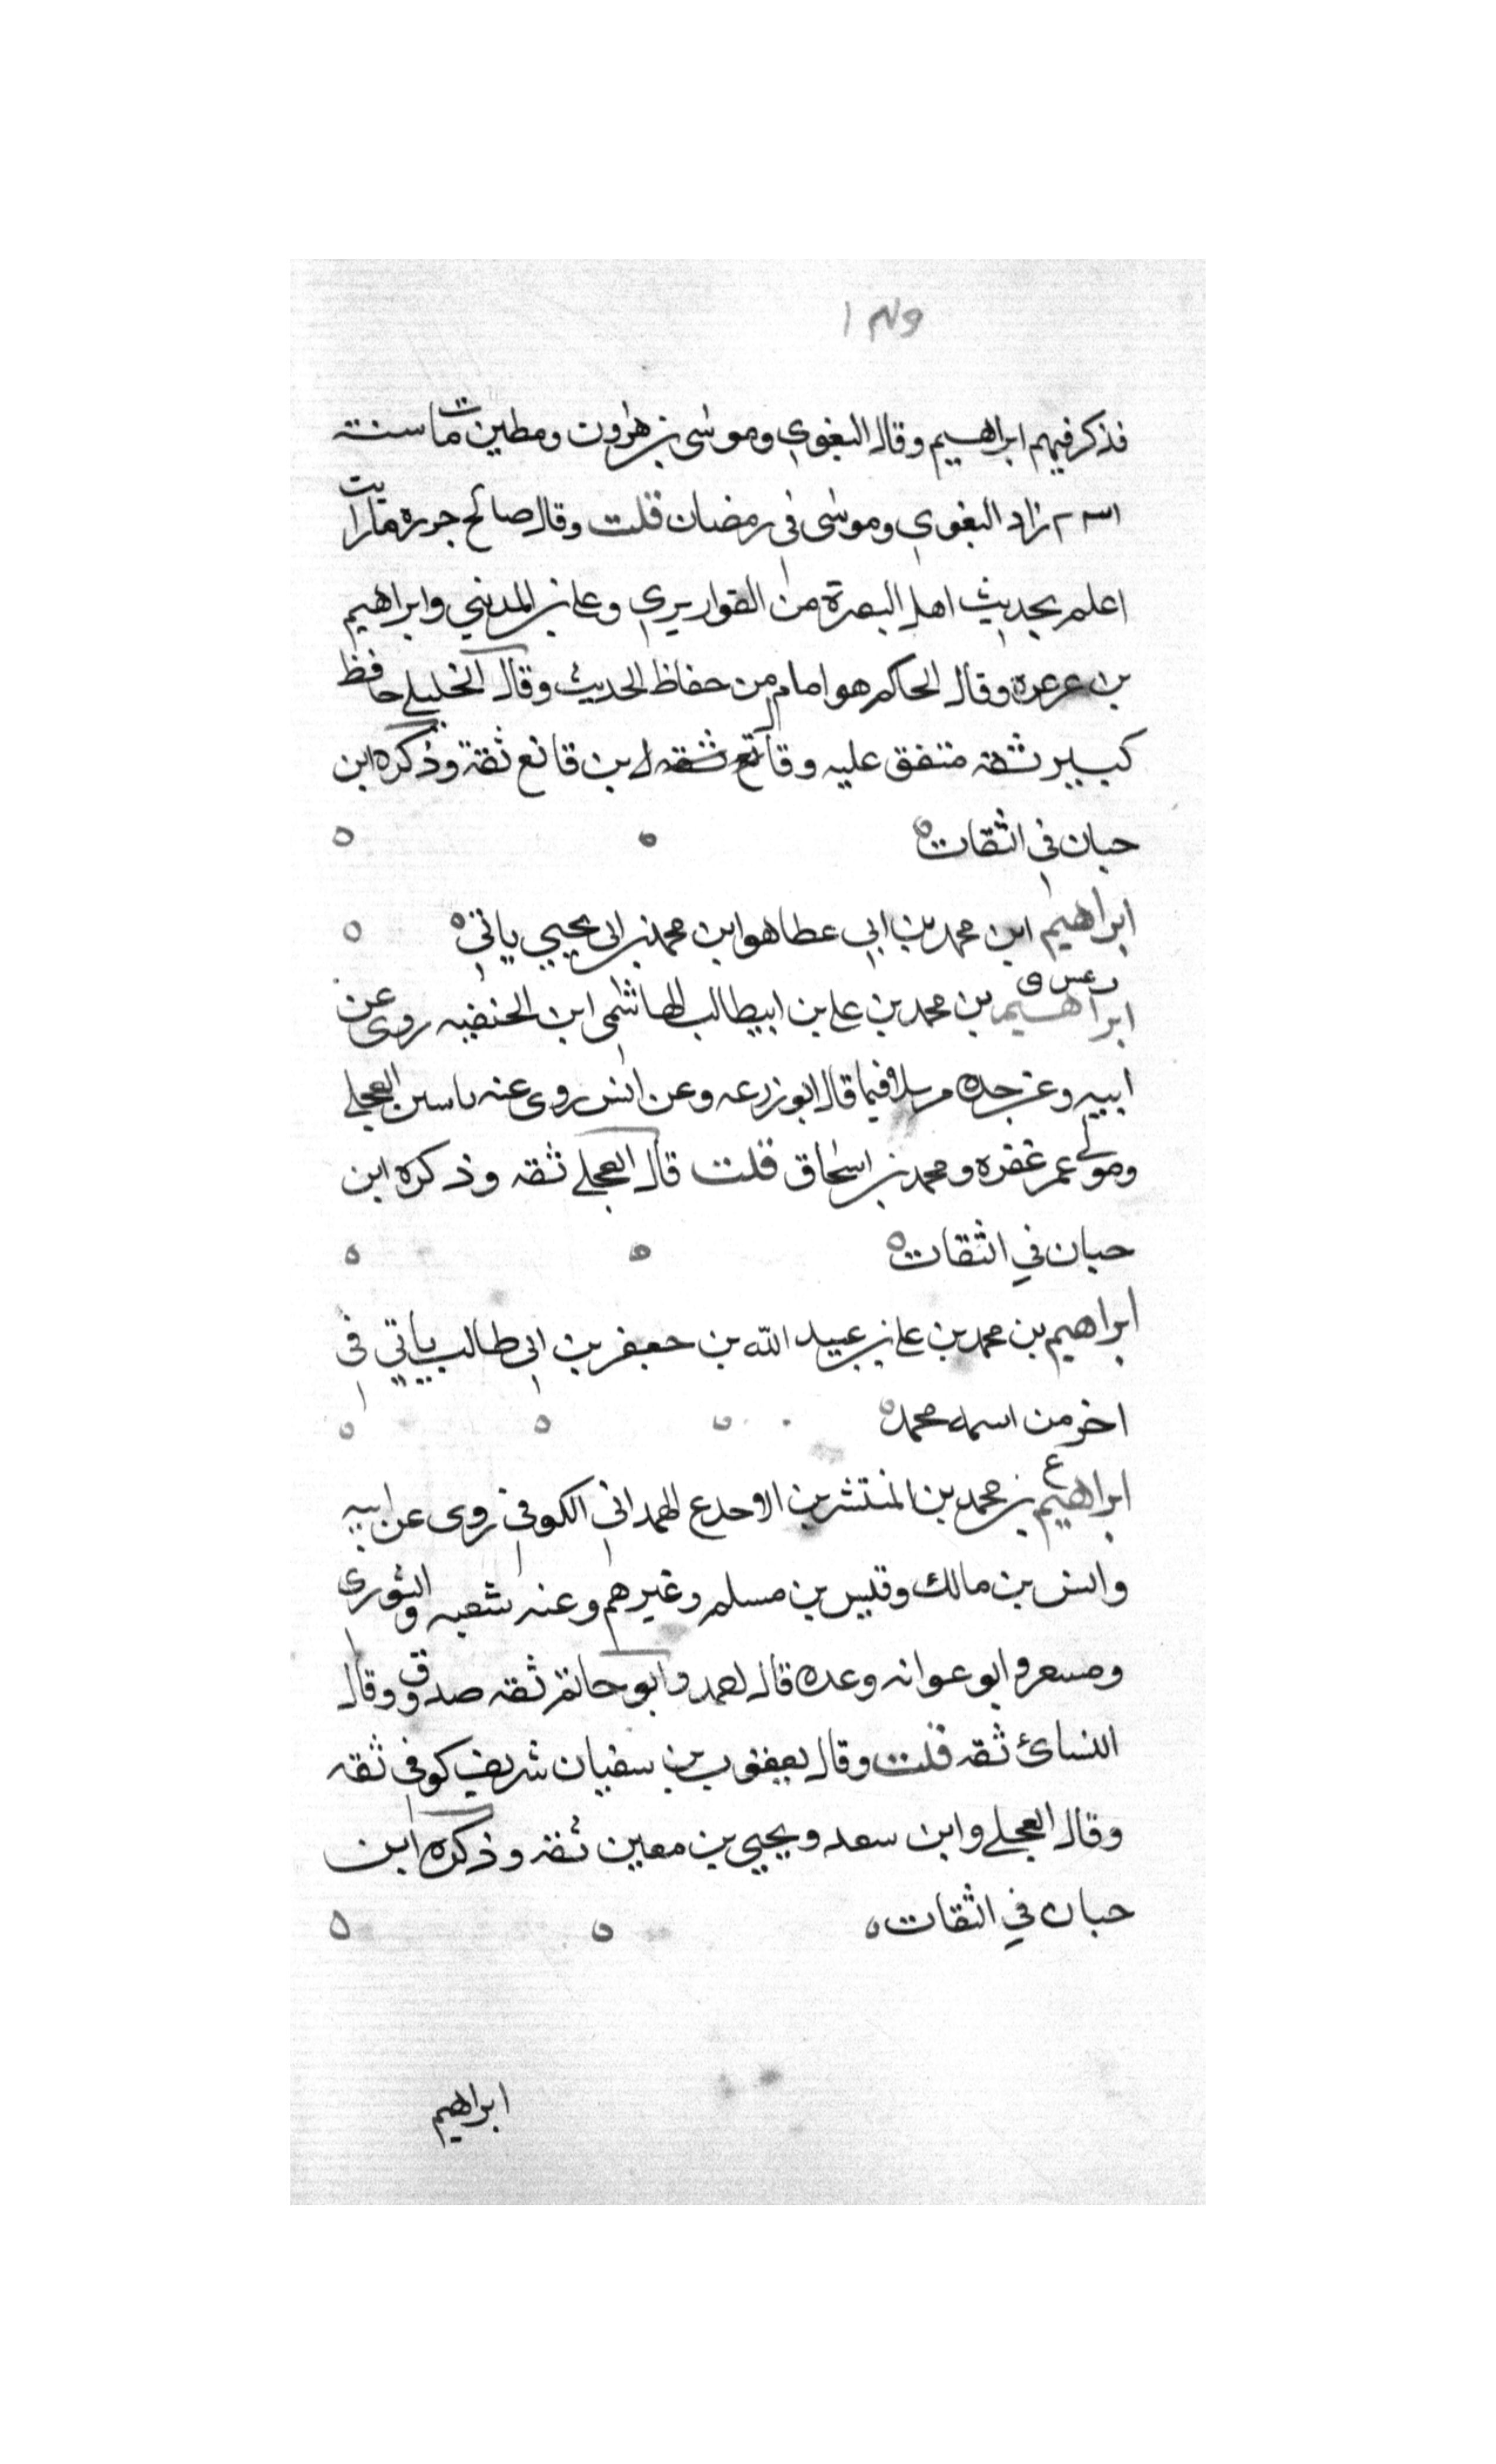 فذكر فيهم ابراهيم وقال البغوي وموسى بن هرون ومطين مات سنة
٢٣١ زاد البغوي وموسى في رمضان قلت وقال صالح جزرة ما رايت
اعلم بحديث اهل البصرة من القواريري وعلي بن المديني وابراهيم
بن عرعرة وقال الحاكم هو امام من حفاظ الحديث وقال الخليلي حافظ
كبير ثقة متفق عليه وقا ثقه لابن قانع ثقة وذكره ابن
حبان في الثقات
ابراهيم ابن محمد بن ابي عطا هو ابن محمد بن ابي يحيي ياتي
عس ق
ابراهيم بن محمد بن علي بن ابيطالب الهاشمي ابن الحنفيه روى عن
ابيه وعن جده مرسلا فيما قال ابو زرعه وعن انس روى عنه ياسين العجلي
ومولى عمر غفره ومحمد بن اسحاق قلت قال العجلي ثقه وذكره ابن
حبان في الثقات
ابراهيم بن محمد بن علي بن عبيد الله بن جعفر بن ابي طالب ياتي في
اخر من اسمه محمد
ع
ابراهيم بن محمد بن المنتشر بن الاجدع الهمداني الكوفي روى عن ابيه
وانس بن مالك وقيس بن مسلم وغيرهم وعنه شعبه والثوري
ومسعر وابو عوانه وعده قال احمد وابو حاتم ثقه صدوق وقال
النسائ ثقه قلت وقال يعقوب بن سفيان شريف كوفي ثقه
وقال العجلي وابن سعد ويحيي بن معين ثقه وذكره ابن
حبان في الثقات
ابراهيم